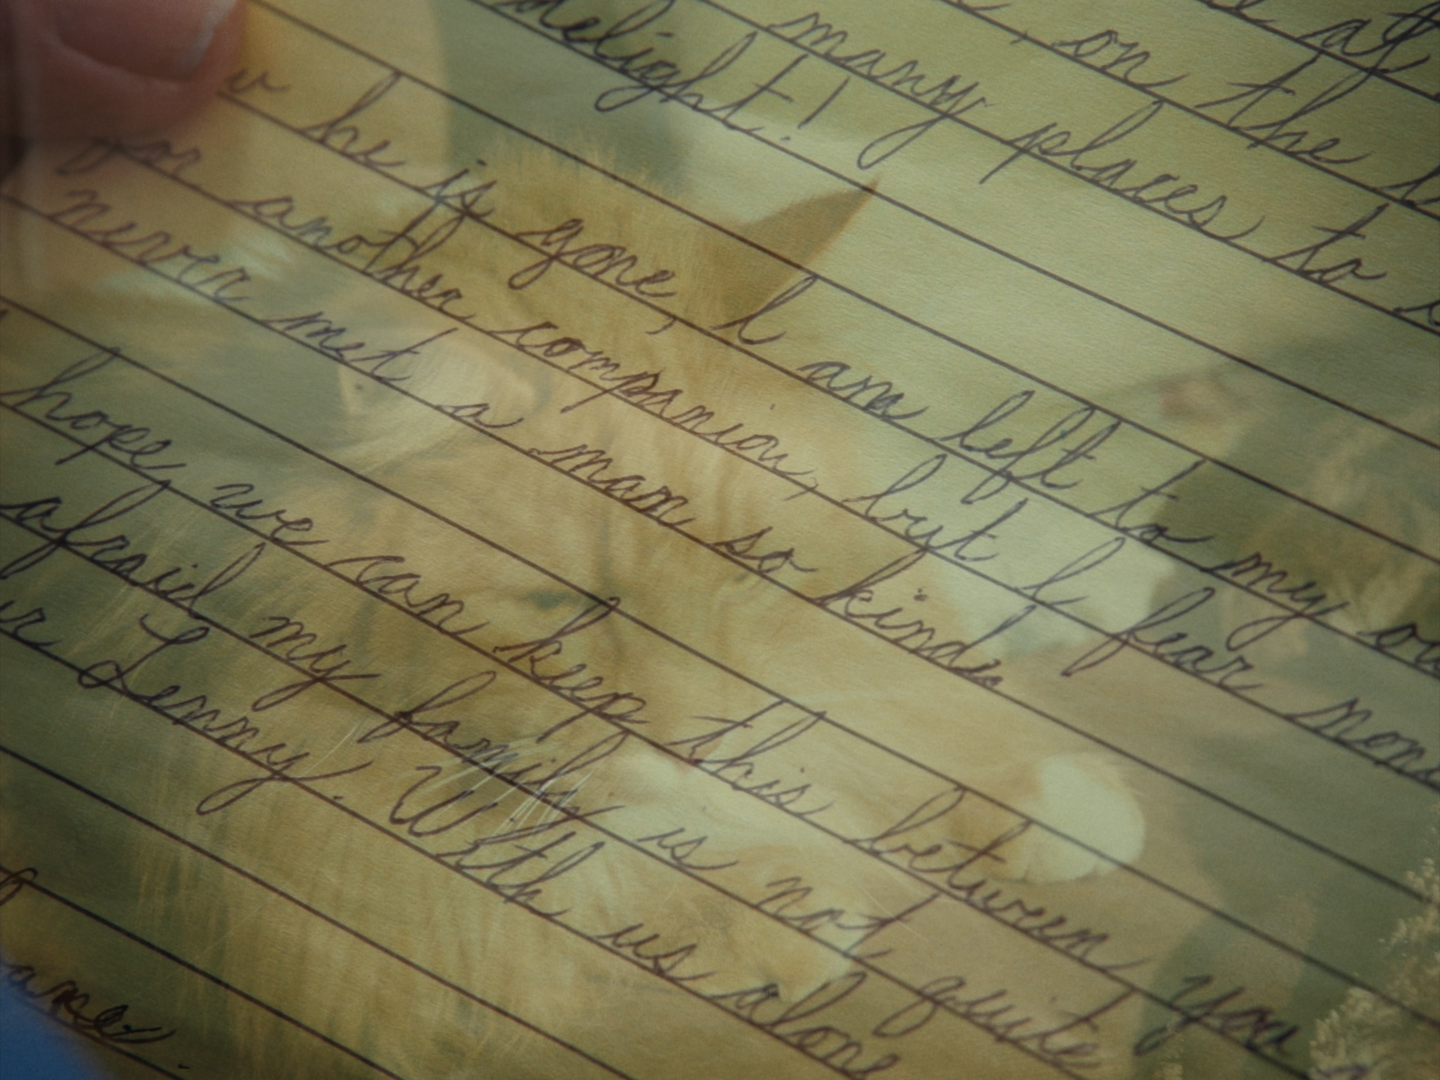 at
, on the
many places to
delight!
he is gone, I am left to my
for another companion, but I fear
never met a man so kind.
hope, we can keep this between you
afraid my family is not quite
Lenny. With us alone